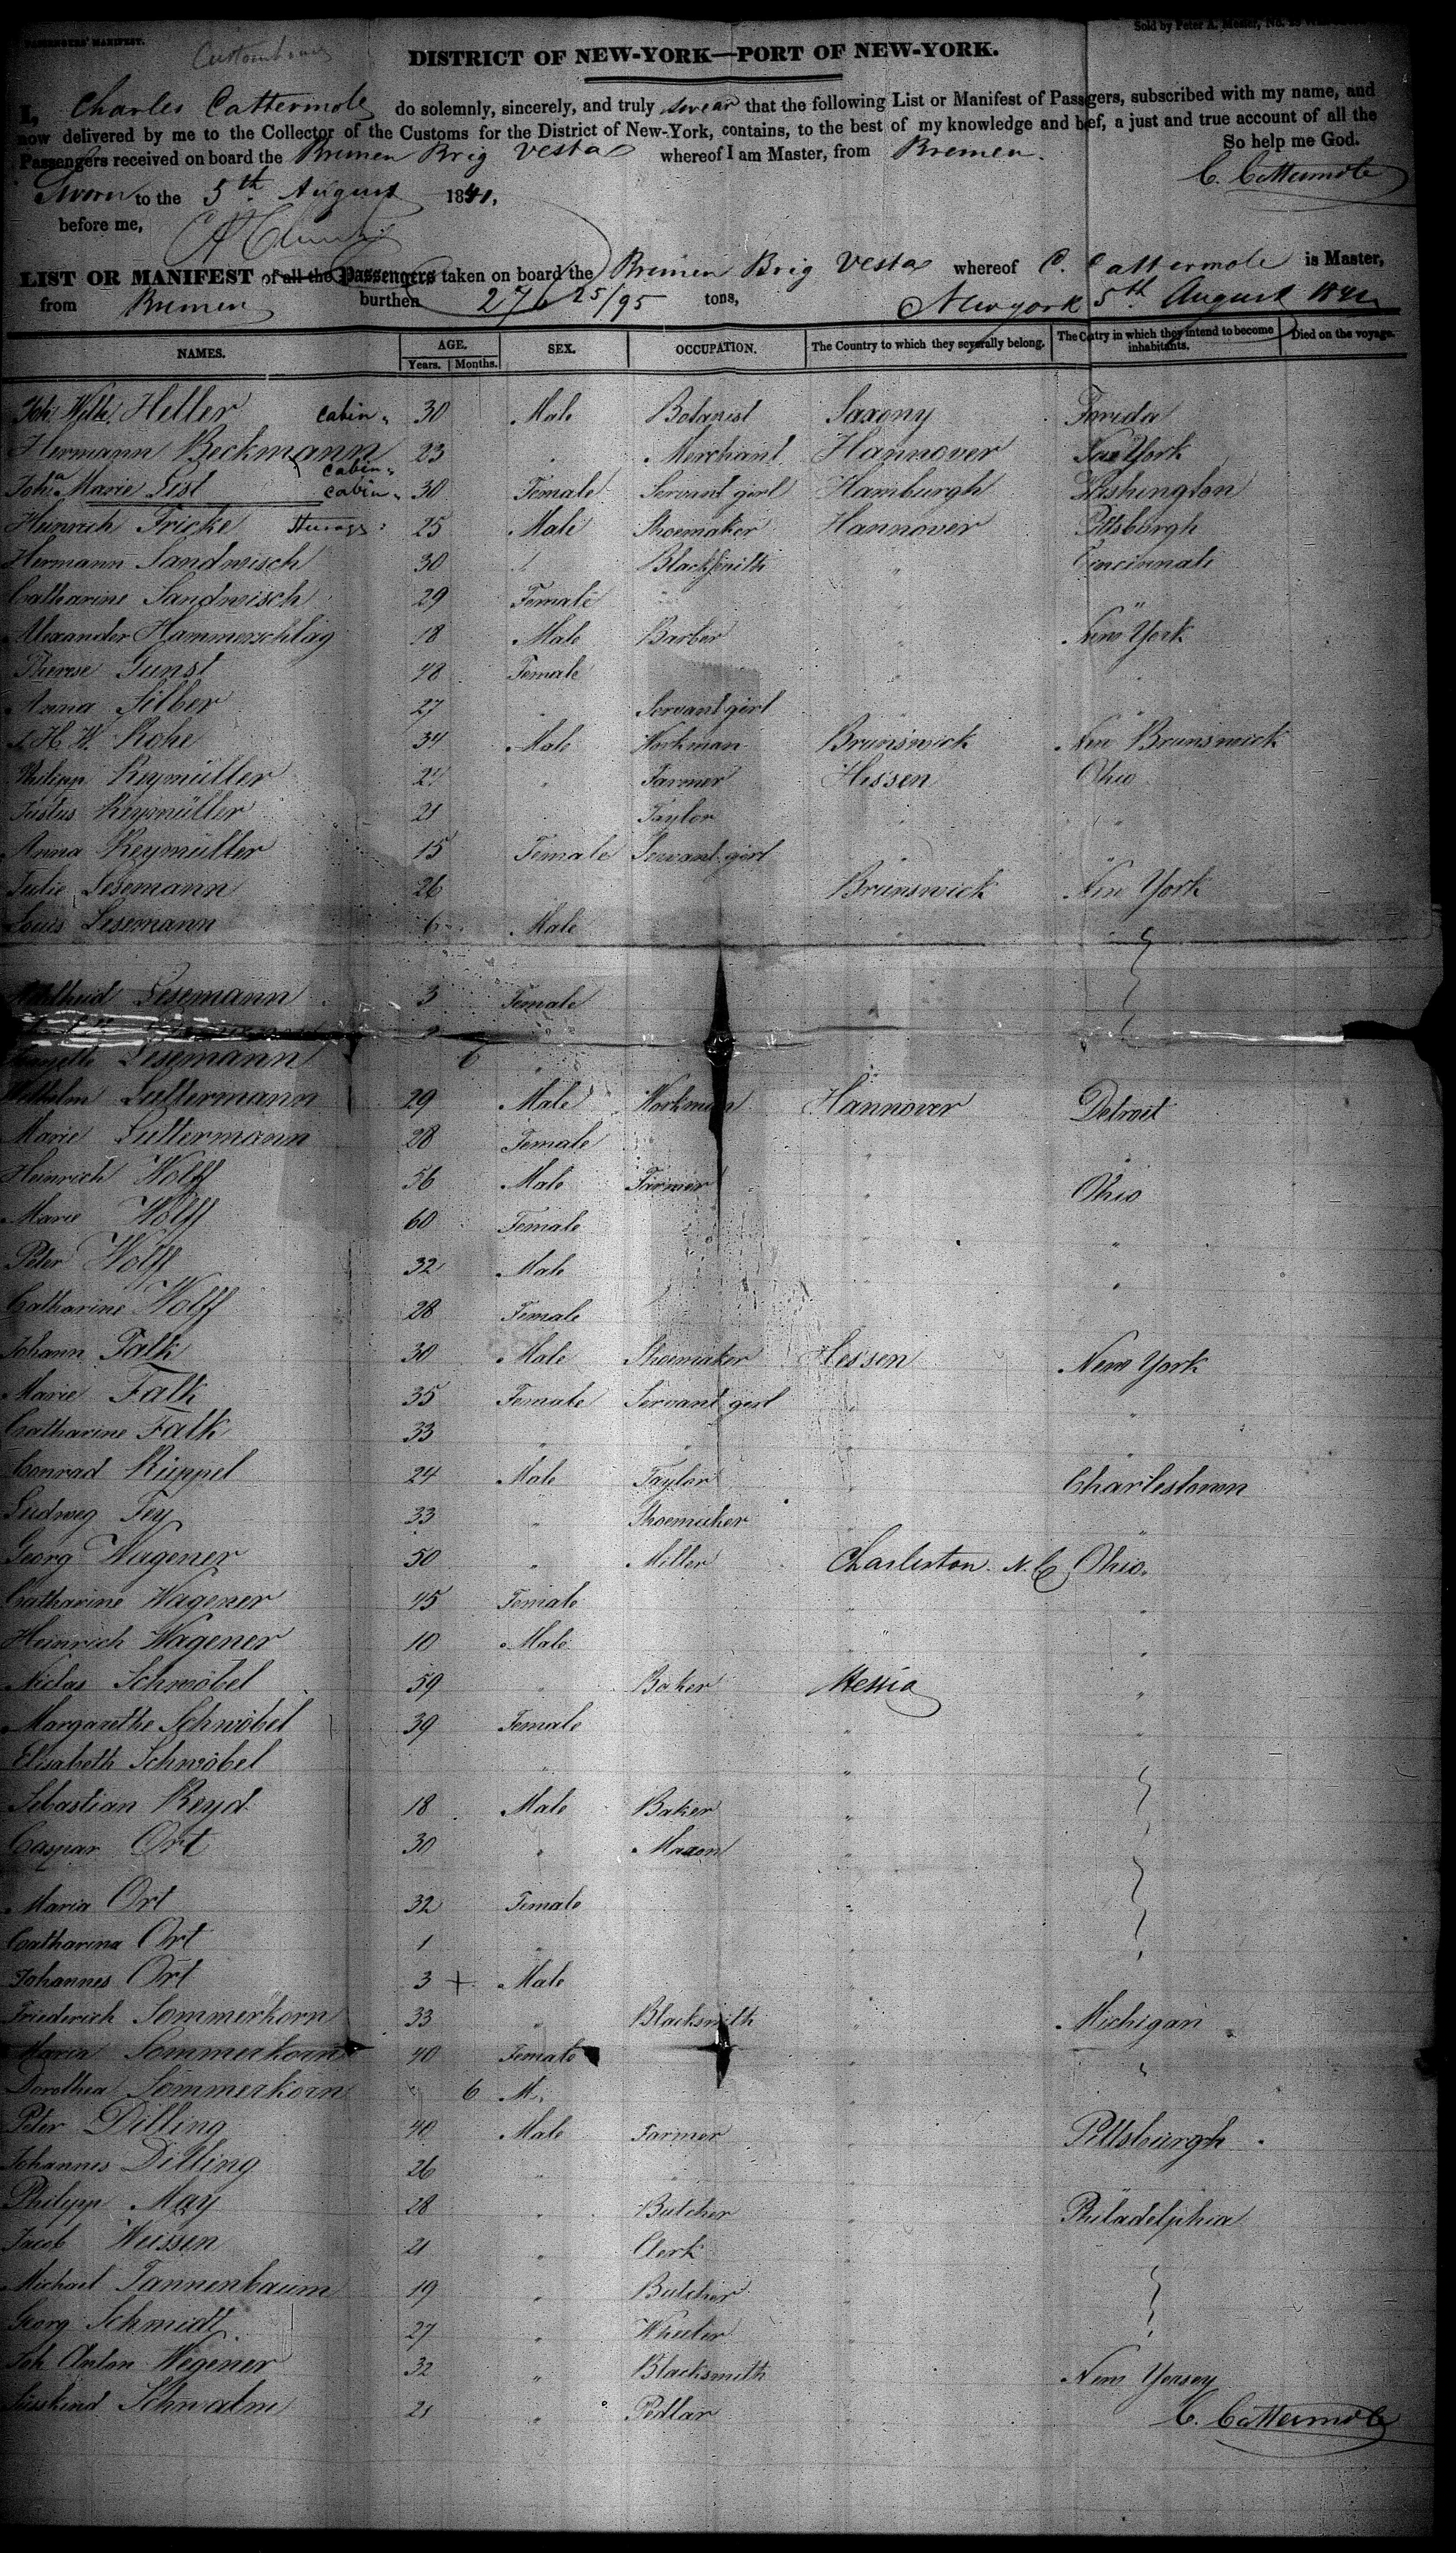 PASSENGERS' MANIFEST.
Sold by Peter A. Mesier, No.
Customhouse
DISTRICT OF NEW-YORK—PORT OF NEW-YORK.
I, Charles Cattermole do solemnly, sincerely, and truly swear that the following List or Manifest of Passgers, subscribed with my name, and
now delivered by me to the Collector of the Customs for the District of New-York, contains, to the best of my knowledge and bef, a just and true account of all the
Passengers received on board the Bremen Brig Vesta whereof I am Master, from Bremen. So help me God.
Sworn to the 5th August 1841, C. Cattermole
before me,
LIST OR MANIFEST of all the Passengers taken on board the Bremen Brig Vesta whereof C. Cattermole is Master,
from Bremen burthen 276 25/95 tons, New york 5th August 1841
NAMES. AGE. SEX. OCCUPATION. The Country to which they severally belong. The Cntry in which they intend to become inhabitants. Died on the voyage.
Years. Months.
Joh. Wilh. Heller cabin " 30 Male Botanist Saxony Florida
Hermann Beckmann cabin " 23 " Merchant Hannover New York
Joha Marie List cabin " 30 Female Servant girl Hamburgh Washington
Heinrich Fricke Steerage : 25 Male Shoemaker Hannover Pittsburgh
Hermann Sandwisch 30 " Blacksmith " Cincinnati
Catharine Sandwisch 29 Female " " "
Alexander Hammerschlag 18 Male Barber " New York
Therese Gunst 48 Female " "
Anna Silber 27 " Servant girl " "
H. W. Rohe 34 Male Workman Brunswick New Brunswick
Philipp Reymüller 2 " Farmer Hessen Ohio
Justus Reymüller 21 " Taylor " "
Anna Reymüller 15 Female Servant girl " "
Julie Lesemann 26 Brunswick New York
Louis Lesemann 6 Male "
Adelheid Lesemann 3 Female
Lesemann 6 "
Wilhelm Luttermann 29 Male Workman Hannover Detroit
Marie Luttermann 28 Female " "
Heinrich Wolff 56 Male Farmer " Ohio
Marie Wolff 60 Female " "
Peter Wolff 32 Male " "
Catharine Wolff 28 Female
Johann Falk 30 Male Shoemaker Hessen New York
Marie Falk 35 Female Servant girl " "
Catharine Falk 33 " " " "
Conrad Rüppel 24 Male Taylor " Charlestown
Ludwig Fey 33 " Shoemaker " "
Georg Wagener 50 " Miller Charleston N. C. Ohio.
Catharine Wagener 45 Female " "
Heinrich Wagener 10 Male " "
Niclas Schwöbel 59 " Baker Hessia "
Margarethe Schwöbel 39 Female " "
Elisabeth Schwöbel " "
Sebastian Reyd 18 Male Baker "
Caspar Ort 30 " Mason "
Maria Ort 32 Female "
Catharina Ort 1 " "
Johannes Ort 3 + Male "
Friederich Sommerkorn 33 " Blacksmith " Michigan
Maria Sommerkorn 40 Female " "
Dorothea Sommerkorn 6 M.
Peter Dilling 40 Male Farmer " Pittsburgh
Johannes Dilling 26 " " "
Philipp May 28 " Butcher " Philadelphia
Jacob Weissen 21 " Clerk "
Michael Tannenbaum 19 " Butcher "
Georg Schmidt 27 " Wheeler "
Joh Anton Wegener 32 " Blacksmith " New Yersey
Süsskind Schwalm 21 " Pedlar "
C. Cattermole